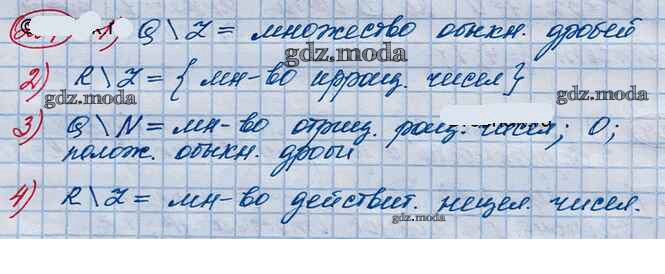 1) Q \ Z = множество обыкн. дробей
gdz.moda
2) R \ Z = { мн-во иррац. чисел }
gdz.moda
gdz.moda
3) Q \ N = мн-во отриц. рац. чисел; 0;
полож. обыкн. дроби
4) R \ Z = мн-во действит. нецел. чисел.
gdz.moda